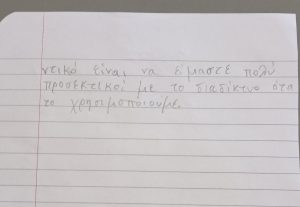 ντικό είναι να είμαστε πολύ
προσεκτικοί με το διαδίκτυο ότα
το χρησιμοποιουμε.